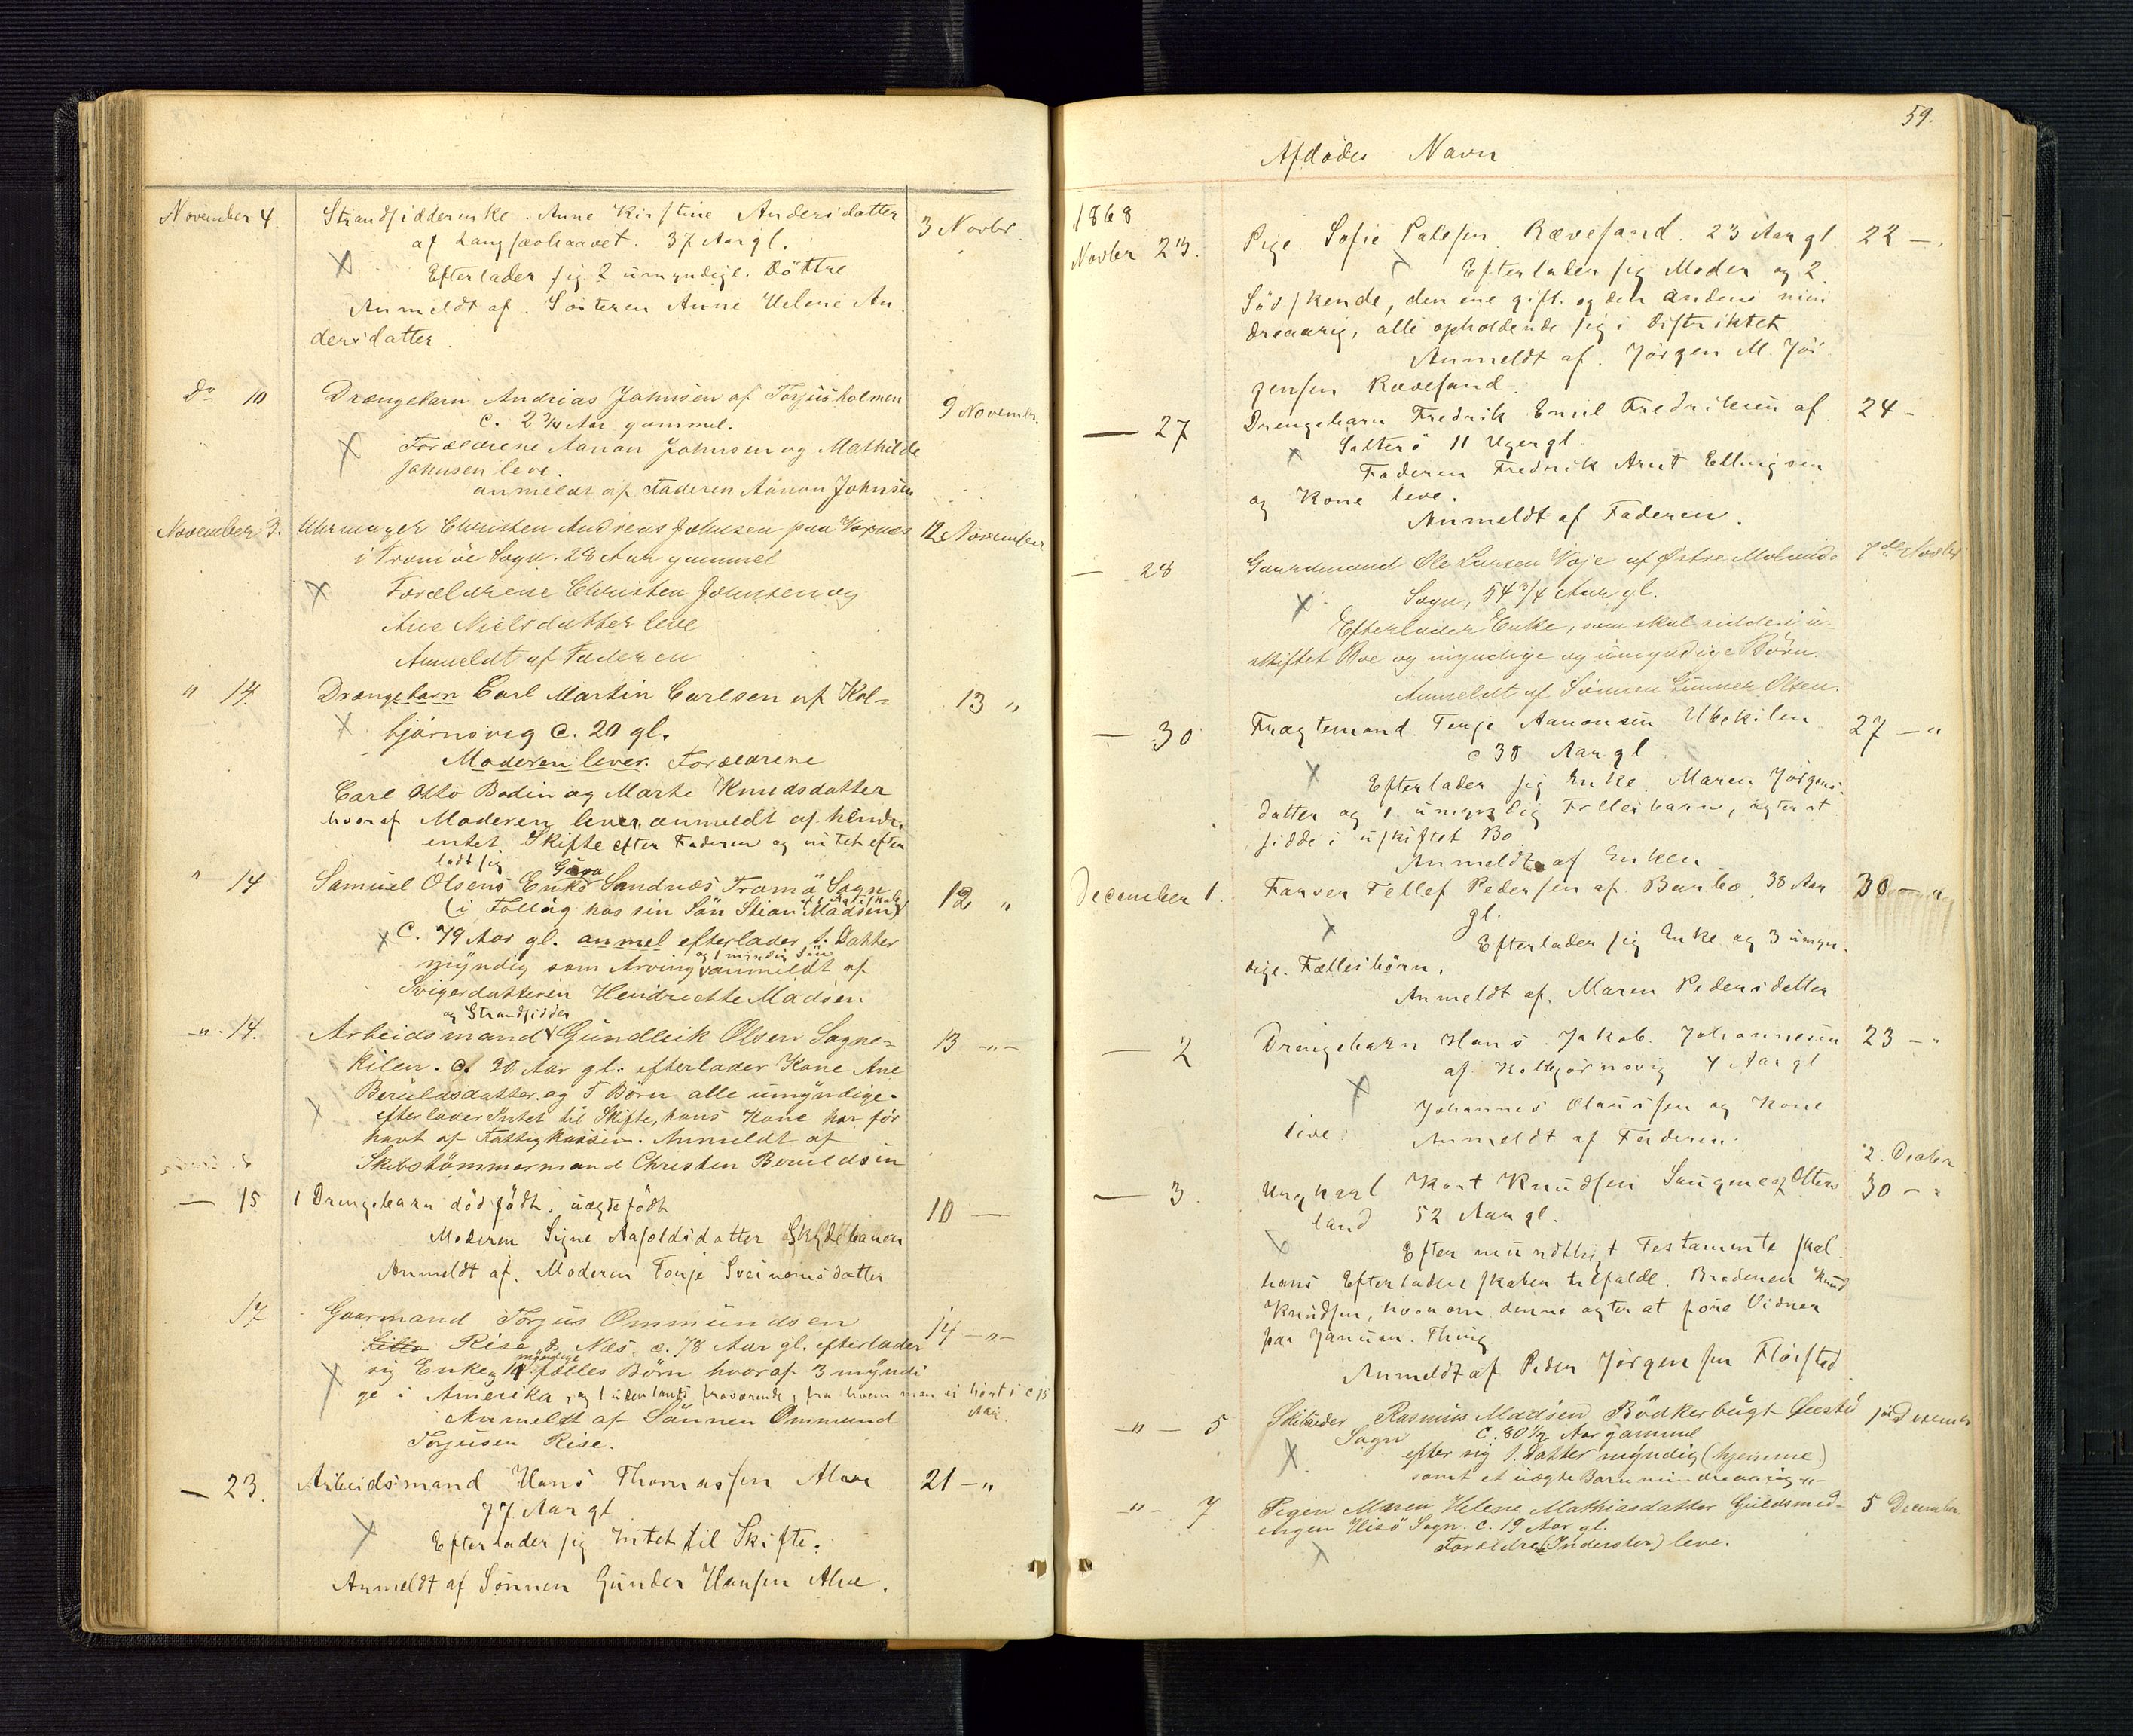 November 4 Strandsidderenke. Anne Kirstine Andersdatter 3 Novbr.
af Langsævhaavet. 37 Aar gl.
Efterlader sig 2 umyndige Döttre
Anmeldt af Sösteren Anne Helene An
dersdatter
Do 10 Drængebarn Andreas Johnsen af Torjusholmen 9 November.
c. 2 3/4 Aar gammel.
Forældrene Aanon Johnsen og Mathilde
Johnsen leve.
anmeldt af Faderen Aanon Johnsen
November 13. Uhrmager Christen Andreas Johnsen paa Voxnæs 12 November
i Tromöe Sogn. 28 Aar gammel
Forældrene Christen Johnsen og
Ane Nielsdatter leve
Anmeldt af Faderen
" 14. Drængebarn Carl Martin Carlsen af Kol= 13 "
björnsvig c. 20 gl.
Moderen lever. Forældrene
Carl Otto Bodin og Marte Knudsdatter
hvoraf Moderen lever anmeldt af hende.
intet Skifte efter Faderen og intet efter
ladt sig
" 14 Samuel Olsens Enke Sandnæs Tromö Sogn 12 "
(i Föllag hos sin Sön Stian Madsen)
C. 79 Aar gl. anmel efterlader 1. Datter
myndig som Arving og 1 myndig Sön anmeldt af
Svigerdatteren Hendriette Madsen
og Strandsidder
-"- 14. Arbeidsmand Gundleik Olsen Sagne= 13 -"-
kilen. c. 30 Aar gl. efterlader Kone Ane
Beruldsdatter og 5 Börn alle umyndige.
efterlader Intet til Skifte, hans Kone har för
havt af Fattigkassen. Anmeldt af
Skibstömmermand Christen Beruldsen
— 15 1 Drengebarn död födt, uægtefödt 10 —
Moderen Signe Aasoldsdatter Skydebanen
Anmeldt af Moderen Tonje Sveinomsdatter
17 Gaarmand Torjus Ommundsen 14 -"-
Rise Næs. c. 78 Aar gl. efterlader
sig Enke og myndige fælles Börn hvoraf 3 myndi
ge i Amerika, og 1 udenlands fraværende, fra hvem man ei hört i c 15
Aar.
Anmeldt af Sönnen Ommund
Torjusen Rise.
— 23. Arbeidsmand Hans Thomassen Alve 21 — "
77 Aar gl
Efterlader sig Intet til Skifte.
Anmeldt af Sönnen Gunder Hansen Alve.
59.
Afdödes Navn
1868
Novber 23. Pige Sofie Rævesand. 23 Aar gl 22 — .
Efterlader sig Moder og 2
Södskende, den ene gift. og den anden min
dreaarig, alle opholdende sig i Distriktet
Anmeldt af Jörgen M. Jör
gensen Rævesand.
— 27 Drengebarn Fredrik Emil Fredriksen af 24 -
Salterö 11 Uger gl
Faderen Fredrik Arnt Ellingsen
og Kone leve.
Anmeldt af Faderen.
— 28 Gaardmand Ole Larsen Voje af Østre Molands 7de Novbr
Sogn, 54 3/4 Aar gl.
Efterlader Enke, som skal sidde i u-
skiftet Boe og myndige og umyndige Börn.
Anmeldt af Sönnen Gunner Olsen.
— 30 Fragtemand Terje Aanonsen Ubekilen 27 — "
c 38 Aar gl
Efterlader sig Enke Maren Jörgens-
datter og 1 umyndig Fellesbarn, agter at
sidde i uskiftet Bo
Anmeldt af Enken
December 1. Farver Tellef Pedersen af Barbo 38 Aar 30
gl.
Efterlader sig Enke og 3 umyn-
dige Fællesbörn.
Anmeldt af Maren Pedersdatter
— 2 Drengebarn Hans Jakob Johannesen 23 — "
af Kolbjörnsvig 4 Aar gl
Johannes Olaussen og Kone
leve. Anmeldt af Faderen.
2. Decbr
— 3. Ungkarl Kort Knudsen 30 — "
land 52 Aar gl.
Efter mundtligt Testamente skal
hans Efterladenskaber tilfalde Broderen Knud
Knudsen, hvorom denne agter at före Vidner
paa Januar Thing
Anmeldt af Peder Jörgensen Flörstad
-"- 5 Skibsreder Rasmus Madsen Bödkerbugt Öiestad 1ste December
Sogn c. 80 1/2 Aar gammel
efter sig 1. Datter myndig (hjemme)
samt et uægte Barn mindreaarig -"-
-"- 7 Pigen Maren Helene Mathiasdatter Guldsmed- 5 December
engen Hisö Sogn. c. 19 Aar gl.
Forældre (Inderster) leve.